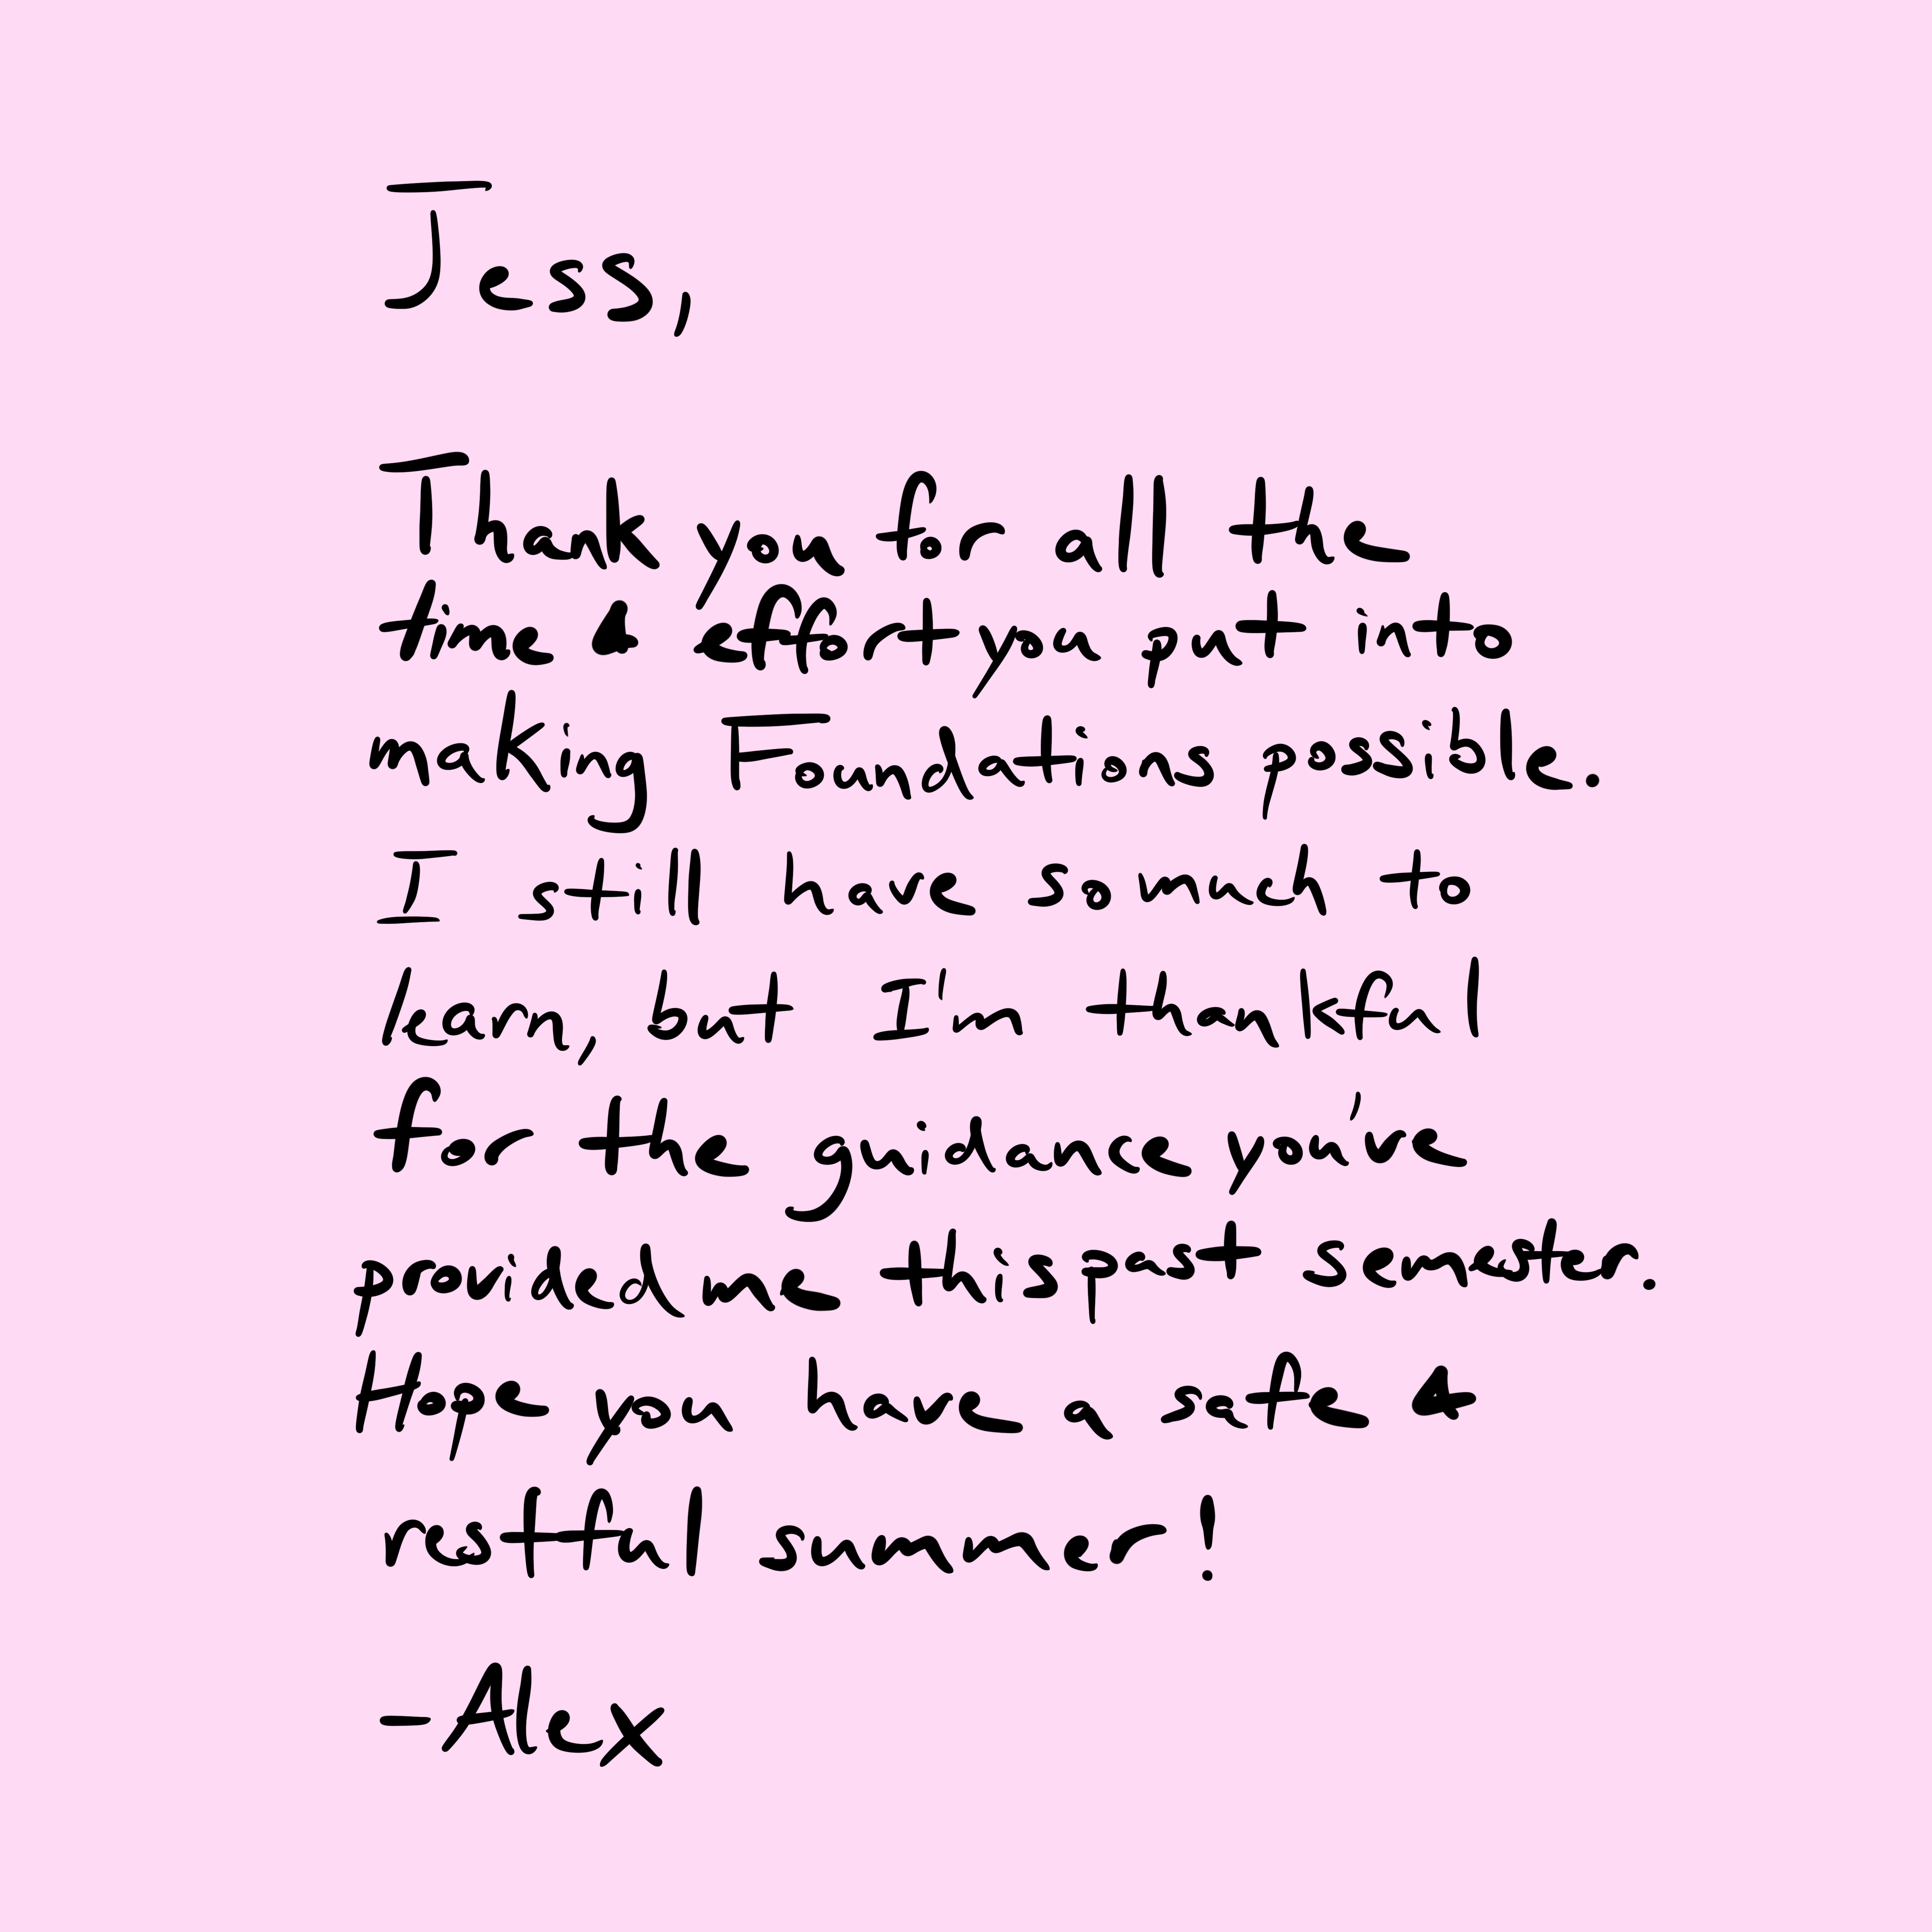 Jess,
Thank you for all the
time & effort you put into
making Foundations possible.
I still have so much to
learn, but I'm thankful
for the guidance you've
provided me this past semester.
Hope you have a safe &
restful summer!
-Alex